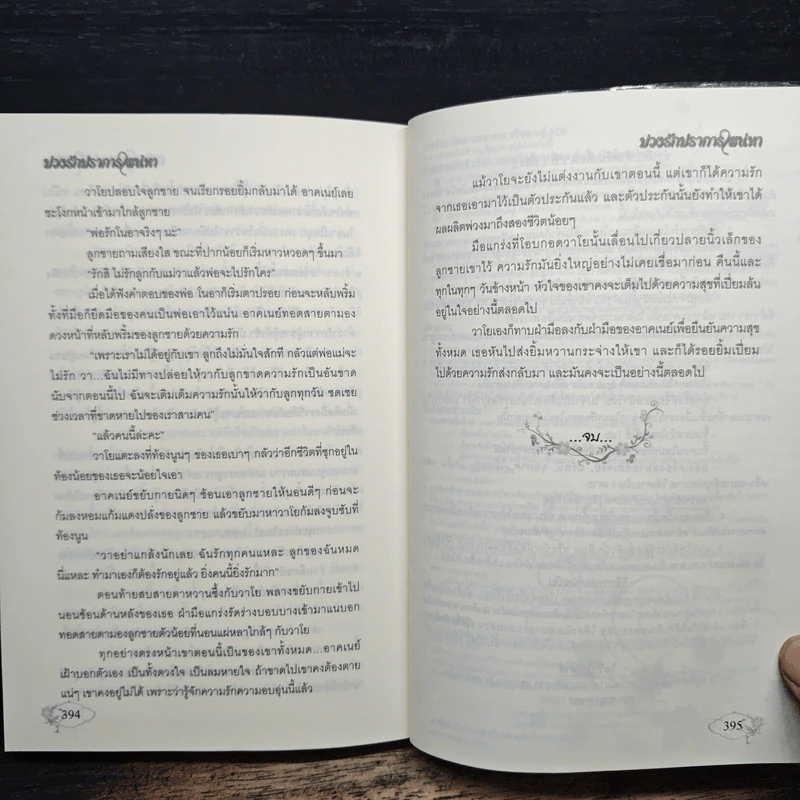 บ่วงรักปราการเสน่หา
วาโยปลอบใจลูกชาย จนเรียกรอยยิ้มกลับมาได้ อาคเนย์เลย
ชะโงกหน้าเข้ามาใกล้ลูกชาย
“พ่อรักโนอาจริงๆ นะ”
ลูกชายถามเสียงใส ขณะที่ปากน้อยก็เริ่มหาวหวอดๆ ขึ้นมา
“รักสิ ไม่รักลูกกับแม่วาแล้วพ่อจะไปรักใคร”
เมื่อได้ฟังคำตอบของพ่อ โนอาก็เริ่มตาปรอย ก่อนจะหลับพริ้ม
ทั้งที่มือก็ยึดมือของคนเป็นพ่อเอาไว้แน่น อาคเนย์ทอดสายตามอง
ดวงหน้าที่หลับพริ้มของลูกชายด้วยความรัก
“เพราะเราไม่ได้อยู่กับเขา ลูกถึงไม่มั่นใจสักที กลัวแต่พ่อแม่จะ
ไม่รัก วา...ฉันไม่มีทางปล่อยให้วากับลูกขาดความรักเป็นอันขาด
นับจากตอนนี้ไป ฉันจะเติมเต็มความรักนั้นให้วากับลูกทุกวัน ชดเชย
ช่วงเวลาที่ขาดหายไปของเราสามคน”
“แล้วคนนี้ล่ะคะ”
วาโยแตะลงที่ท้องนูนๆ ของเธอเบาๆ กลัวว่าอีกชีวิตที่ซุกอยู่ใน
ท้องน้อยของเธอจะน้อยใจเอา
อาคเนย์ขยับกายนิดๆ ช้อนเอาลูกชายให้นอนดีๆ ก่อนจะ
ก้มลงหอมแก้มแดงปลั่งของลูกชาย แล้วขยับมาหาวาโยก้มลงจูบซับที่
ท้องนูน
“วาอย่าแกล้งนักเลย ฉันรักทุกคนแหละ ลูกของฉันหมด
นี่แหละ ทำมาเองก็ต้องรักอยู่แล้ว ยิ่งคนนี้ยิ่งรักมาก”
ตอนท้ายสบสายตาหวานซึ้งกับวาโย พลางขยับกายเข้าไป
นอนซ้อนด้านหลังของเธอ ฝ่ามือแกร่งรัดร่างบอบบางเข้ามาแนบอก
ทอดสายตามองลูกชายตัวน้อยที่นอนแผ่หลาใกล้ๆ กับวาโย
ทุกอย่างตรงหน้าเขาตอนนี้เป็นของเขาทั้งหมด...อาคเนย์
เฝ้าบอกตัวเอง เป็นทั้งดวงใจ เป็นลมหายใจ ถ้าขาดไปเขาคงต้องตาย
แน่ๆ เขาคงอยู่ไม่ได้ เพราะว่ารู้จักความรักความอบอุ่นนี้แล้ว
394
บ่วงรักปราการเสน่หา
แม้วาโยจะยังไม่แต่งงานกับเขาตอนนี้ แต่เขาก็ได้ความรัก
จากเธอเอามาไว้เป็นตัวประกันแล้ว และตัวประกันนั้นยังทำให้เขาได้
ผลผลิตพ่วงมาถึงสองชีวิตน้อยๆ
มือแกร่งที่โอบกอดวาโยนั้นเลื่อนไปเกี่ยวปลายนิ้วเล็กของ
ลูกชายเขาไว้ ความรักมันยิ่งใหญ่อย่างไม่เคยเชื่อมาก่อน คืนนี้และ
ทุกในทุกๆ วันข้างหน้า หัวใจของเขาคงจะเต็มไปด้วยความสุขที่เปี่ยมล้น
อยู่ในใจอย่างนี้ตลอดไป
วาโยเองก็ทาบฝ่ามือลงกับฝ่ามือของอาคเนย์เพื่อยืนยันความสุข
ทั้งหมด เธอหันไปส่งยิ้มหวานกระจ่างให้เขา และก็ได้รอยยิ้มเปี่ยม
ไปด้วยความรักส่งกลับมา และมันคงจะเป็นอย่างนี้ตลอดไป
...จบ...
395